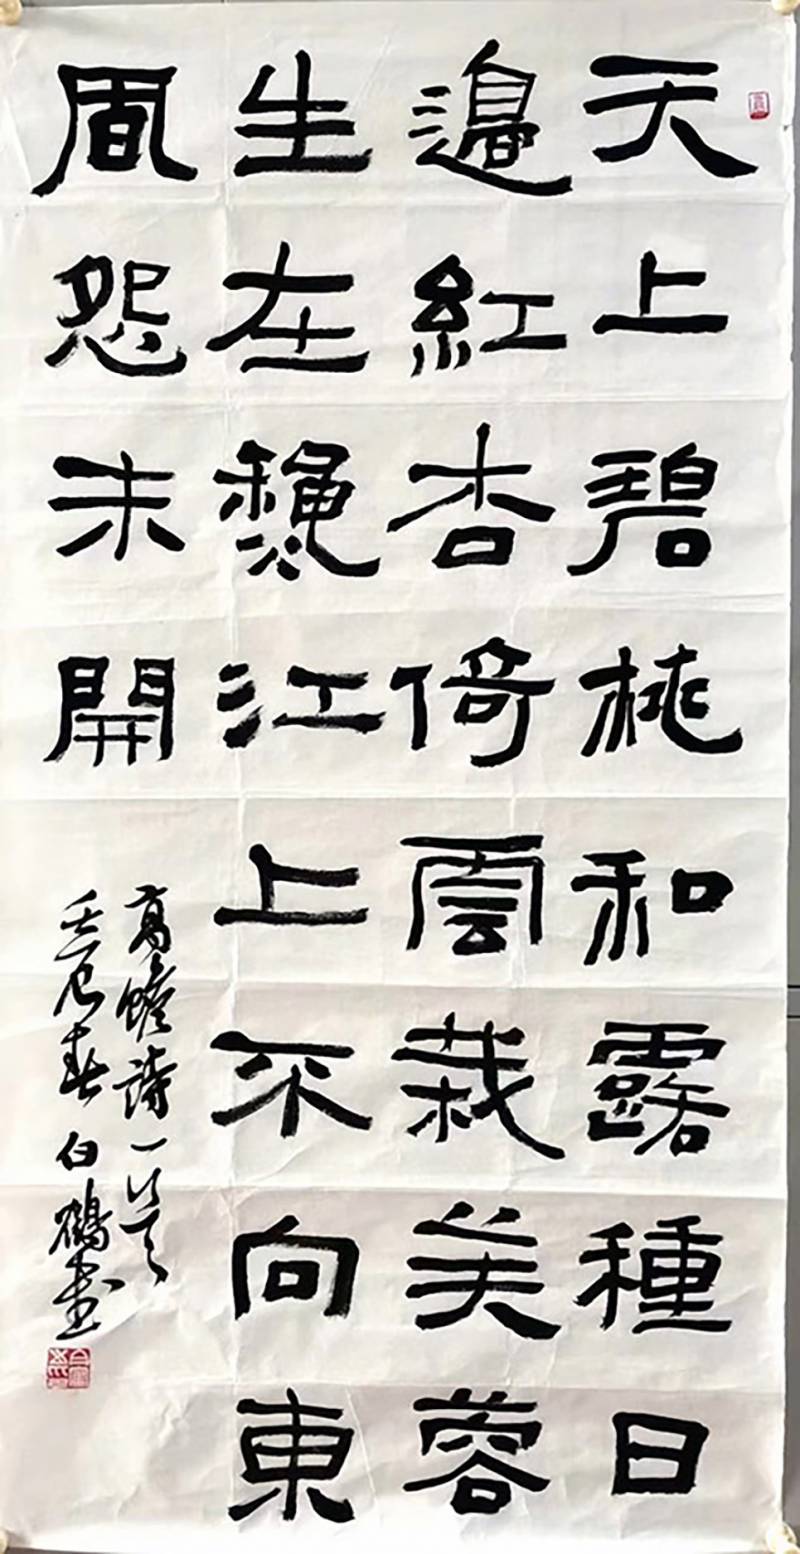 天上碧桃和露種日
邊紅杏倚雲栽芙蓉
生在龝江上不向東
凬怨未開
高蟾詩一首
壬辰春白鶴書